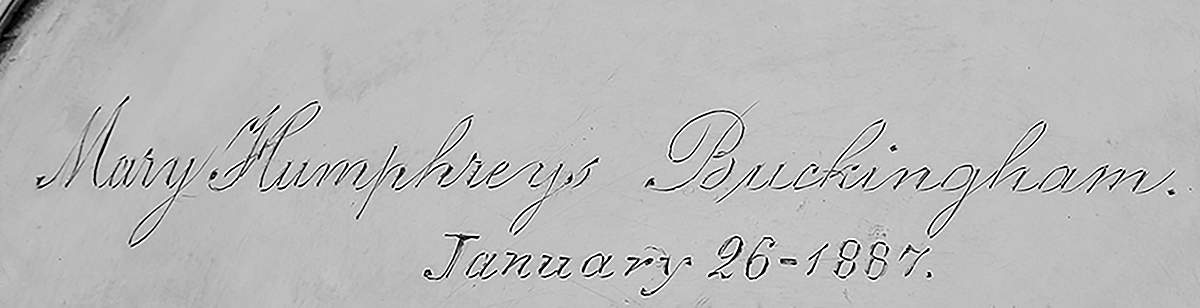 Mary Humphreys Buckingham.
January 26-1887.